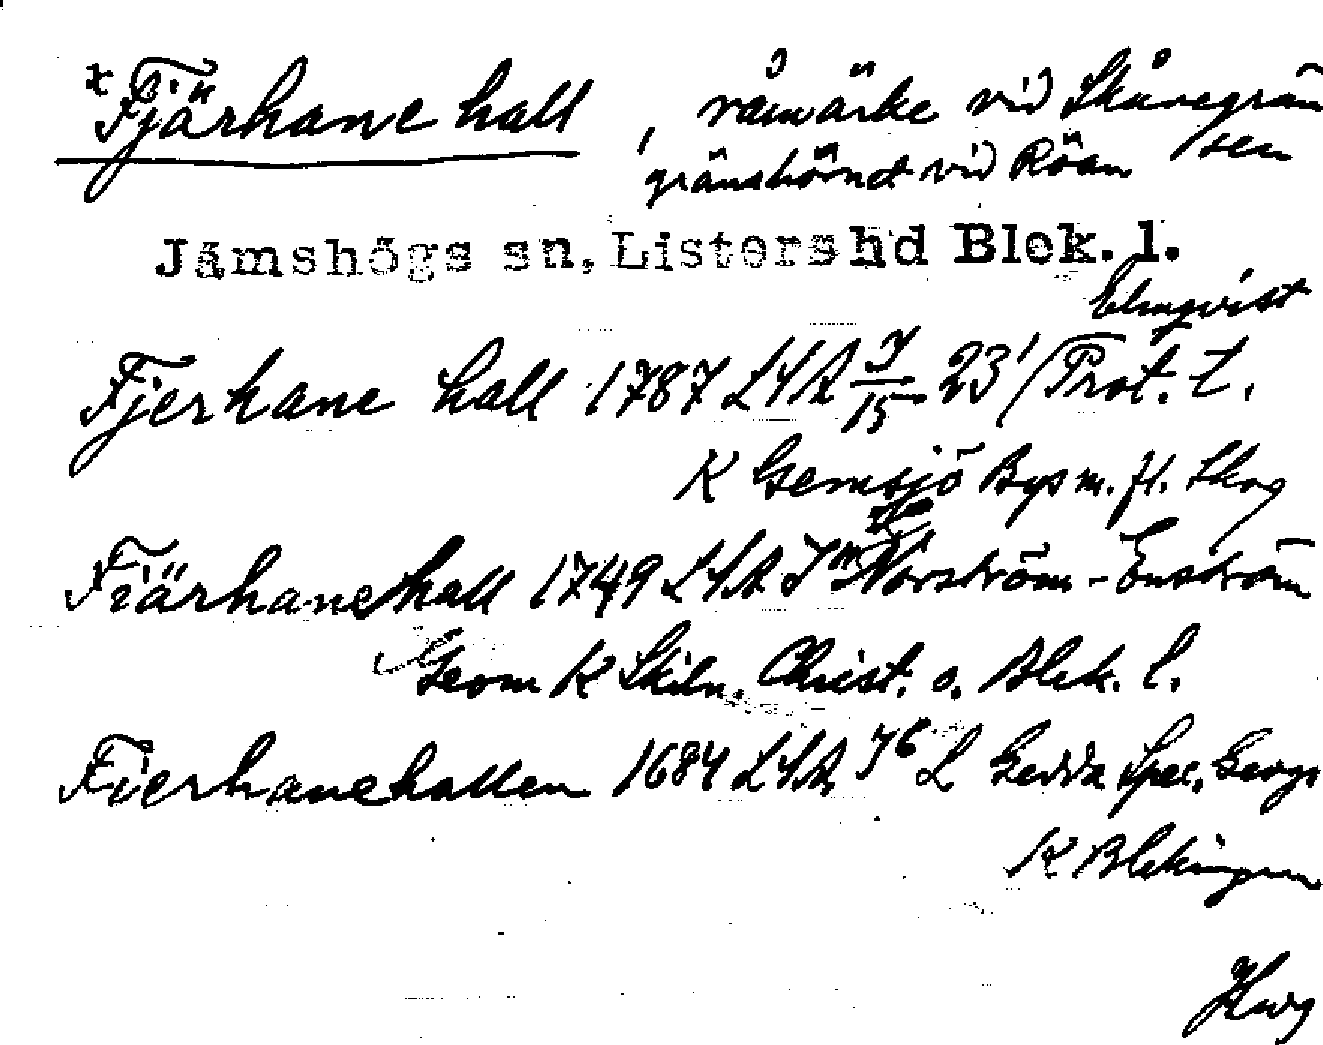 *Fjärhane hall, råmärke vid Skånegrän
sen
gränshörnet vid Röån
Jämshögs sn, Listers hd Blek. l.
Elmqvist
Fjerhane hall 1787 LSA J/15 23'/Prot. t.
K Gemsjö Bys m. fl. Skog
Fiärhanehall 1749 LSA Jm Norström-Enström
Geom K Skiln. Christ. o. Blek. l.
Fierhanehallen 1684 LSA J6 L Gedda Spec. Geogr
K Blekingen